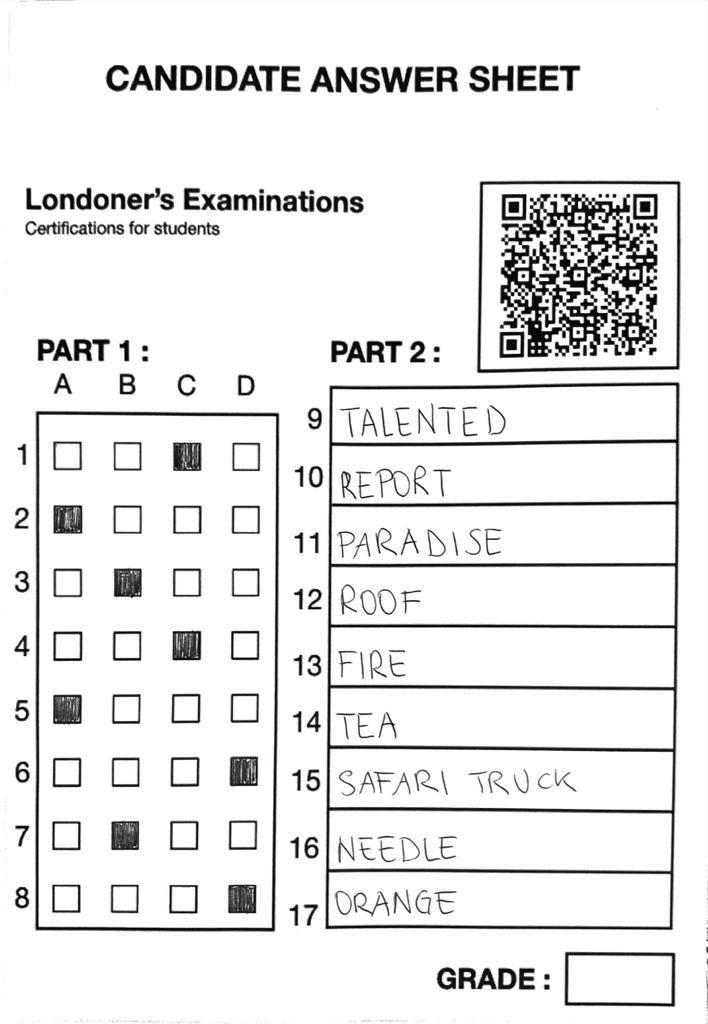 CANDIDATE ANSWER SHEET
Londoner's Examinations
Certifications for students
PART 1 :
A B C D
1
2
3
4
5
6
7
8
PART 2 :
9 TALENTED
10 REPORT
11 PARADISE
12 ROOF
13 FIRE
14 TEA
15 SAFARI TRUCK
16 NEEDLE
17 ORANGE
GRADE :